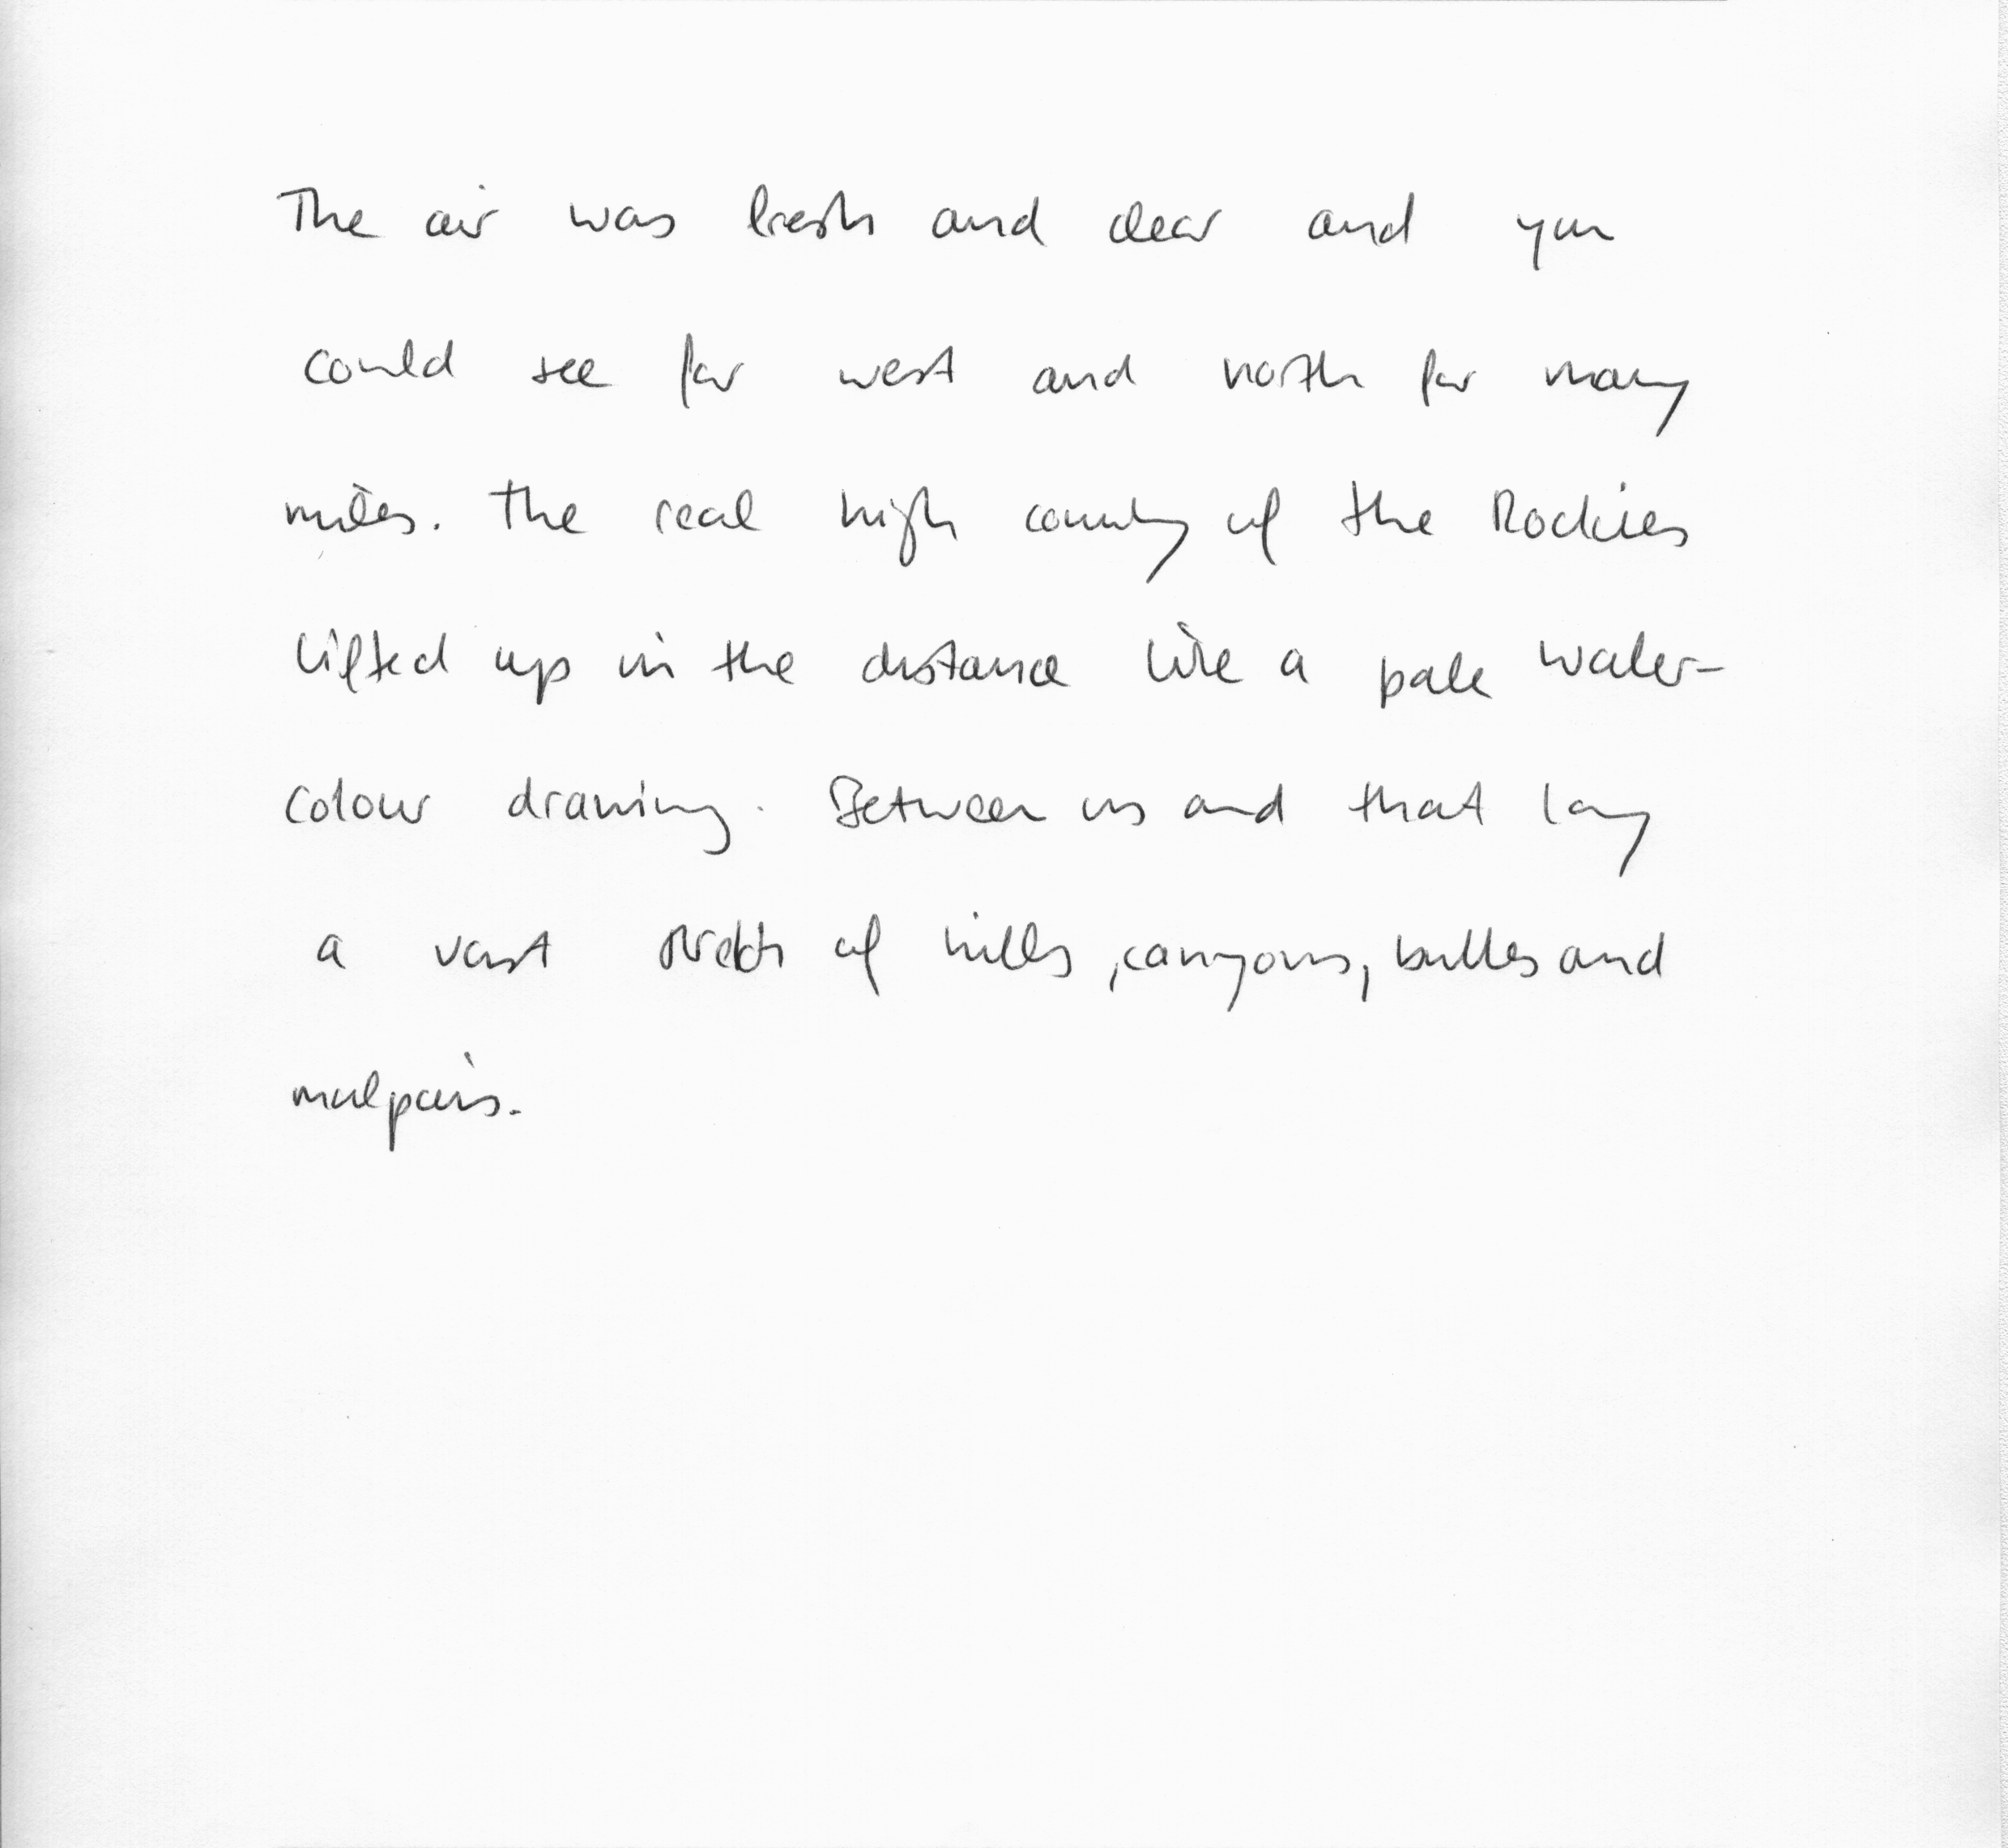 The air was fresh and clear and you
could see far west and north for many
miles. The real high country of the Rockies
lifted up in the distance like a pale water-
colour drawing. Between us and that lay
a vast stretch of hills, canyons, buttes and
malpais.